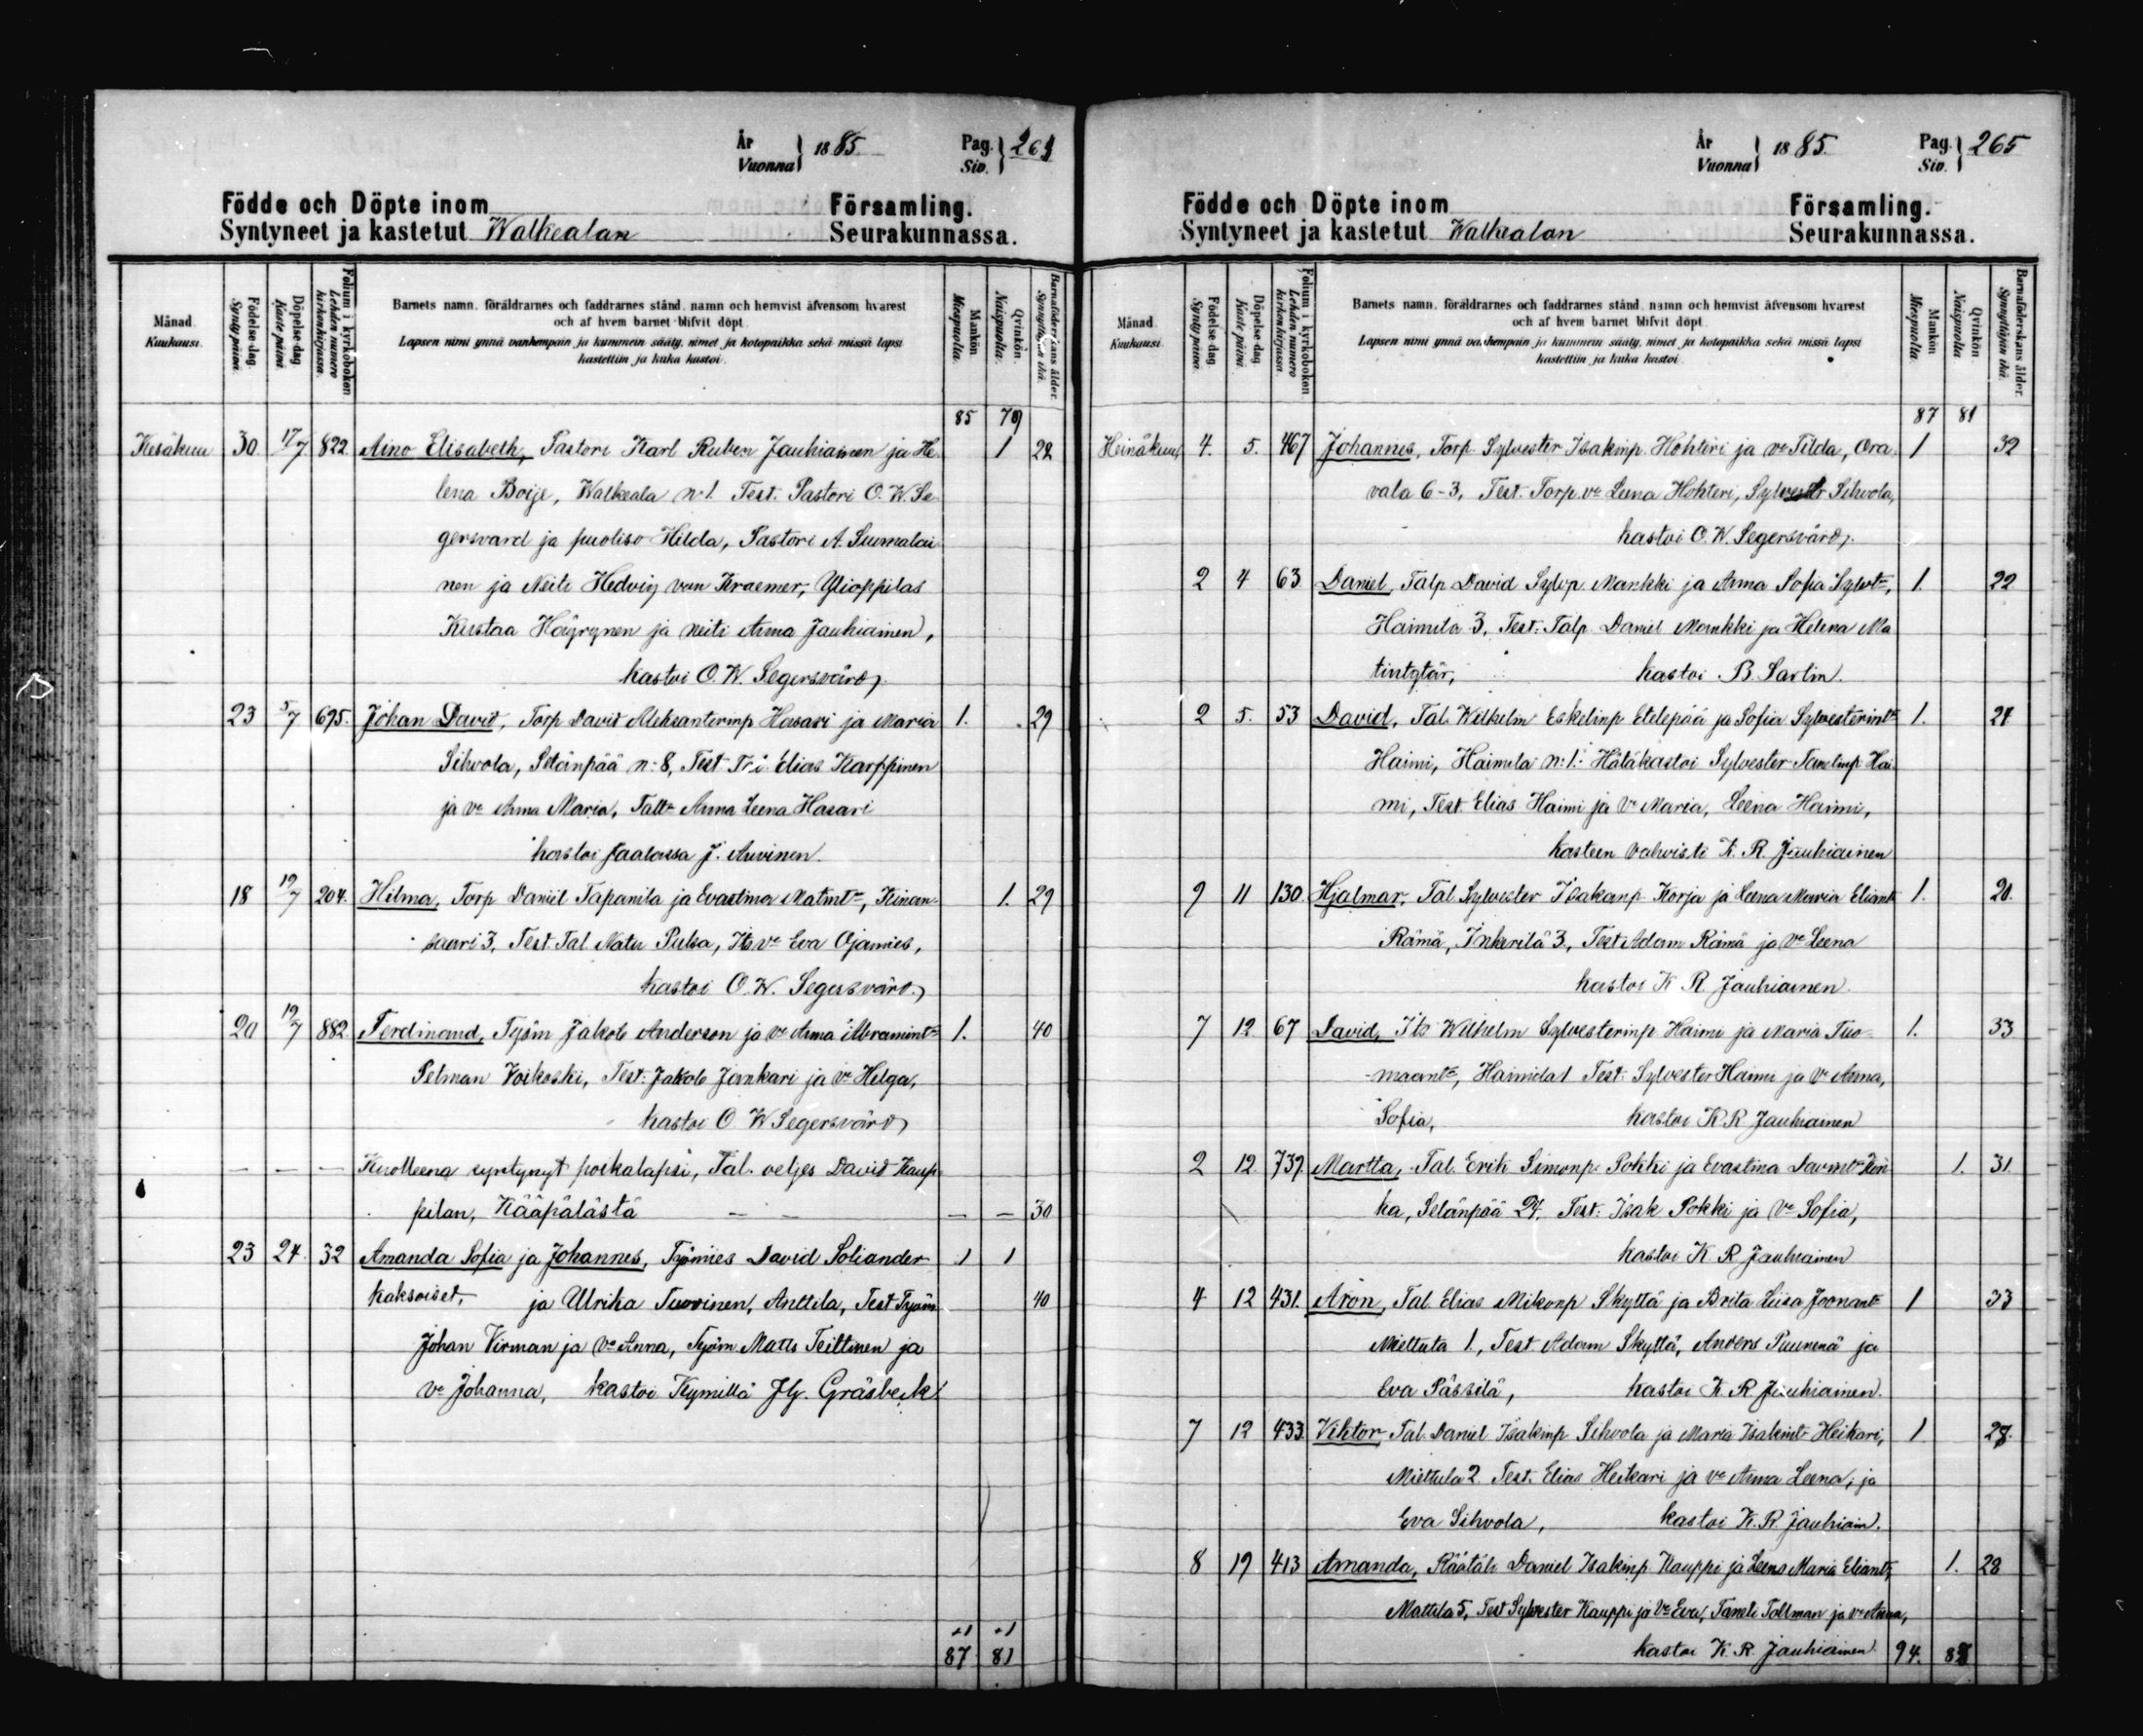 År
Vuonna } 1885. Pag.
Siv. } 264
Födde och Döpte inom Församling.
Syntyneet ja kastetut Walkealan Seurakunnassa.
Månad. Kuukausi.
Födelse-dag. Synty päivä.
Döpelse-dag. Kaste päivä.
Folium i kyrkoboken Lehden numero kirkonkirjassa.
Barnets namn, föräldrarnes och faddrarnes stånd, namn och hemvist äfvensom hvarest
och af hvem barnet blifvit döpt.
Lapsen nimi ynnä vanhempain ja kummein sääty, nimet ja kotopaikka sekä missä lapsi
kastettiin ja kuka kastoi.
Mankön Miespuolta.
Qvinkön Naispuolta.
Barnaföderskans ålder.
85 79
Kesäkuu 30 17/7 822 Aino Elisabeth, Pastori Karl Ruben Jauhiainen ja He 1 22
lena Boije, Walkeala n:1. Test. Pastori O. W. Se
gersvard ja puoliso Hilda, Pastori A. Suomalai
nen ja Neiti Hedvig von Kraemer, Ylioppilas
Kustaa Häyrynen ja neiti Anna Jauhiainen,
kastoi O. W. Segersvärd.
23 5/7 695. Johan David, Torp David Aleksanterinp Hasari ja Maria 1. 29
Sihvola, Selänpää n:8, Test Elias Karppinen
ja vo Anna Maria, Tallt Anna Leena Hasari
kastoi Jaalassa J. Auvinen.
18 19/7 204. Hilma, Torp Daniel Tapanila ja Evastina Matintr, Kinan 1. 29
saari 3, Test. Tal. Natu Pulsa, Its vo Eva Ojamies,
kastoi O. W. Segersvärd.
20 19/7 882 Ferdinand, Työm Jakob Anderson ja vo Anna Abramintr 1. 40
Selman Voikoski, Test: Jakob Jankari ja vo Helga,
kastoi O W Segersvärd
— — — Kuolleena syntynyt poikalapsi, Tal. veljes David Kaup
pilan, Kääpälästä — — — — 30
23 24. 32 Amanda Sofia ja Johannes, Työmies David Soliander 1 1
kaksoiset, ja Ulrika Tuovinen, Anttila, Test Työm 40
Johan Virman ja vo Anna, Työm Matts Teittinen ja
vo Johanna, kastoi Kymillä Hj. Gräsbeck.
+1 +1
87 81
År
Vuonna } 1885. Pag.
Siv. } 265
Födde och Döpte inom Församling.
Syntyneet ja kastetut Walkealan Seurakunnassa.
Månad. Kuukausi.
Födelse-dag. Synty päivä.
Döpelse-dag. Kaste päivä.
Folium i kyrkoboken Lehden numero kirkonkirjassa.
Barnets namn, föräldrarnes och faddrarnes stånd, namn och hemvist äfvensom hvarest
och af hvem barnet blifvit döpt.
Lapsen nimi ynnä vanhempain ja kummein sääty, nimet ja kotopaikka sekä missä lapsi
kastettiin ja kuka kastoi.
Mankön Miespuolta.
Qvinkön Naispuolta.
Barnaföderskans ålder. Synnyttäjän ikä.
87 81
Heinäkuu 4. 5. 467 Johannes, Torp. Sylvester Isakinp. Hohteri ja vo Tilda, Ora 1 32
vala 6-3, Test. Torp. vo Leena Hohteri, Sylvester Sihvola,
kastoi O. W. Segersvärd.
2 4 63 Daniel, Talp David Sylvp Mankki ja Anna Sofia Sylvtr, 1. 22
Haimila 3, Test: Talp. Daniel Mankki ja Helena Ma
tintytär, kastoi B. Sarlin.
2 5. 53 David, Tal. Wilhelm Eskelinp Etelepää ja Sofia Sylvesterintr 1.
Haimi, Haimila n:1. Hätäkastoi Sylvester Tanelinp Hai
mi, Test. Elias Haimi ja Vo Maria, Leena Haimi,
kasteen vahvisti K. R. Jauhiainen
9 11 130. Hjalmar, Tal. Sylvester Isakanp Korja ja Leena Maria Eliantr 1. 20.
Rämä, Inkerilä 3, Test Adam Rämä ja Vo Leena
kastoi K R. Jauhiainen.
7 12 67 David, Its Wilhelm Sylvesterinp Haimi ja Maria Tuo 1. 33
maantr, Haimila 1 Test: Sylvester Haimi ja Vo Anna,
Sofia, kastoi K. R Jauhiainen
2 12 739. Martta, Tal. Erik Simonp. Pokki ja Evastina Davintr 1. 31.
ka, Selänpää 24, Test: Isak Pokki ja Vo Sofia,
kastoi K. R Jauhiainen
4 12 431. Aron, Tal. Elias Mikonp Skyttä ja Brita Liisa Joonantr 1 33
Miettula 1., Test Adam Skyttä, Anders Puunenä ja
Eva Pässilä, kastoi K. R. Jauhiainen.
7 12 433. Viktor, Tal. Daniel Isakinp Sihvola ja Maria Isakintr Heikari, 1
Miettula 2. Test. Elias Heikari ja vo Anna Leena, ja
Eva Sihvola, kastoi K. R. Jauhiain.
8 19 413 Amanda, Räätäli Daniel Isakinp Kauppi ja Leena Maria Eliantr, 1. 28
Mattila 5, Test Sylvester Kauppi ja Vo Eva, Taneli Tollman ja vo Anna,
kastoi K. R. Jauhiainen. 94.